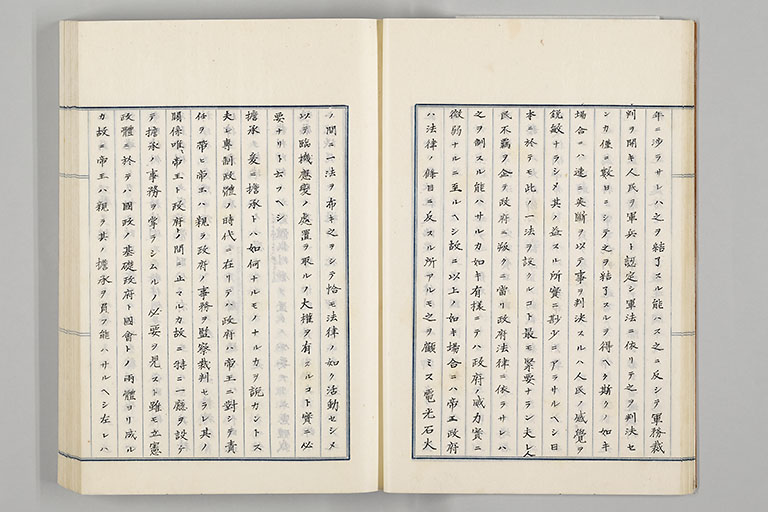 年ニ渉ラサレハ之ヲ結了スル能ハス之ニ反シテ軍務裁
判ヲ開キ人民ヲ軍兵ト認定シ軍法ニ依リテ之ヲ判決セ
シカ僅ニ數日ニシテ之ヲ結了スルヲ得ヘク斯クノ如キ
場合ニハ速ニ英斷ヲ以テ事ヲ判決スルハ人民ノ感覺ヲ
鋭敏ナラシメ其ノ益スル所實ニ尠少ニアラサルヘシ日
本ニ於テモ此ノ一法ヲ設クルコト最モ緊要ナラン夫レ人
民不羈ヲ企テ政府ニ叛クニ當リ政府法律ニ依ラサレハ
之ヲ制スル能ハサルカ如キ有様ニテハ政府ノ威力實ニ
微弱ナルニ至ルヘシ故ニ以上ノ如キ場合ニハ帝王政府
ハ法律ノ條目ニ反スル所アルモ之ヲ顧ミス電光石火
ノ間ニ一法ヲ布キ之ヲシテ恰モ法律ノ如ク活動セシメ
以テ臨機應變ノ處置ヲ取ルノ大權ヲ有スルコト實ニ必
要ナリト云フヘシ
擔承ノ爰ニ擔承トハ如何ナルモノナルカヲ説カントス
夫レ專制政體ノ時代ニ在リテハ政府ハ帝王ニ對シテ責
任ヲ帶ヒ帝王ハ親ラ政府ノ事務ヲ監察裁判セラレ其ノ
關係唯帝王ト政府トノ間ニ止マルカ故ニ特ニ一廳ヲ設テ
テ擔承ノ事務ヲ掌ラシムルノ必要ヲ見スト雖モ立憲
政體ニ於テハ國政ノ基礎政府ト國會トノ兩體ヨリ成ル
カ故ニ帝王ハ親ラ其ノ擔承ヲ負フ能ハサルヘシ左レハ